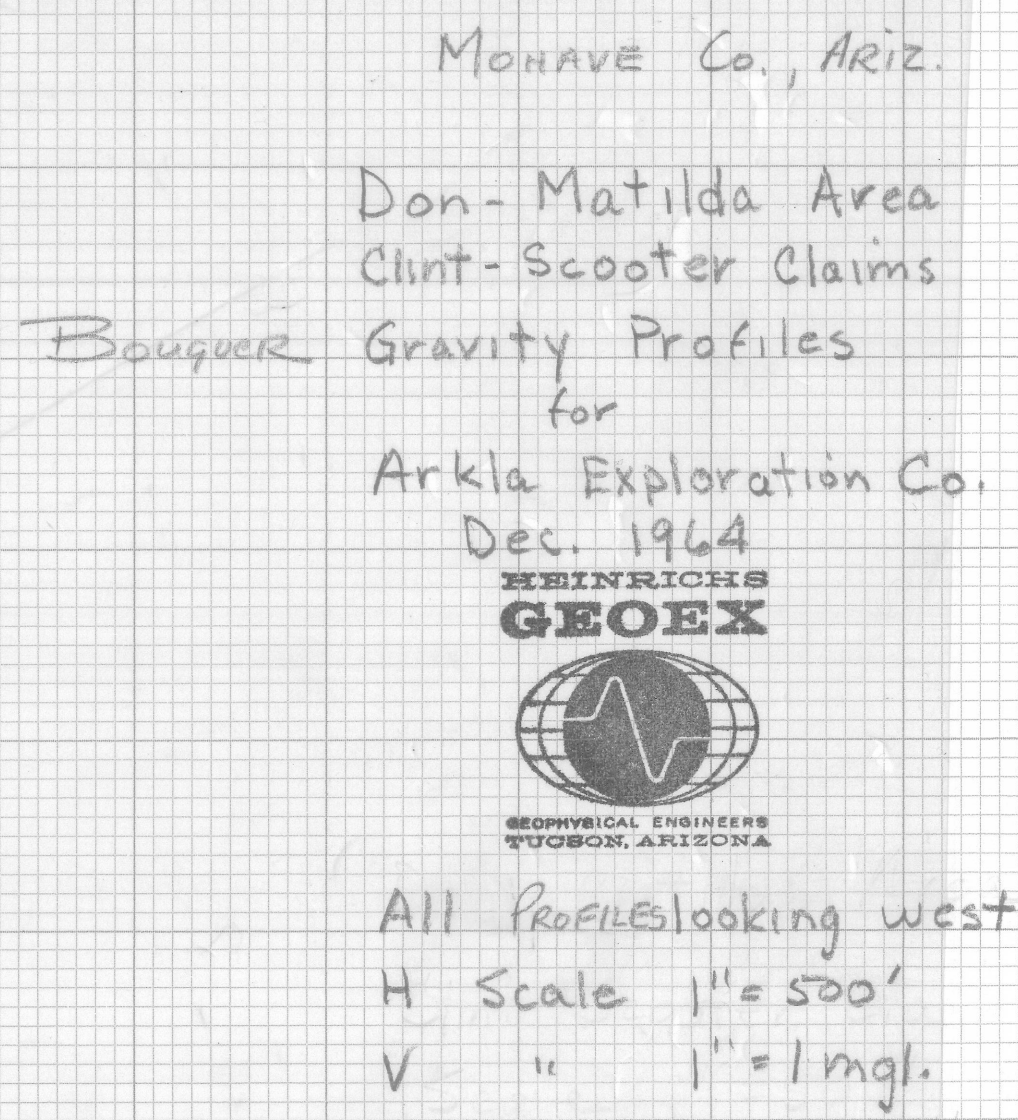 MOHAVE Co., ARIZ.
Don- Matilda Area
Clint- Scooter Claims
BOUGUER Gravity Profiles
for
Arkla Exploration Co.
Dec. 1964
HEINRICHS
GEOEX
GEOPHYSICAL ENGINEERS
TUCSON, ARIZONA
All PROFILES looking west
H Scale 1" = 500'
V " 1" = 1 mgl.